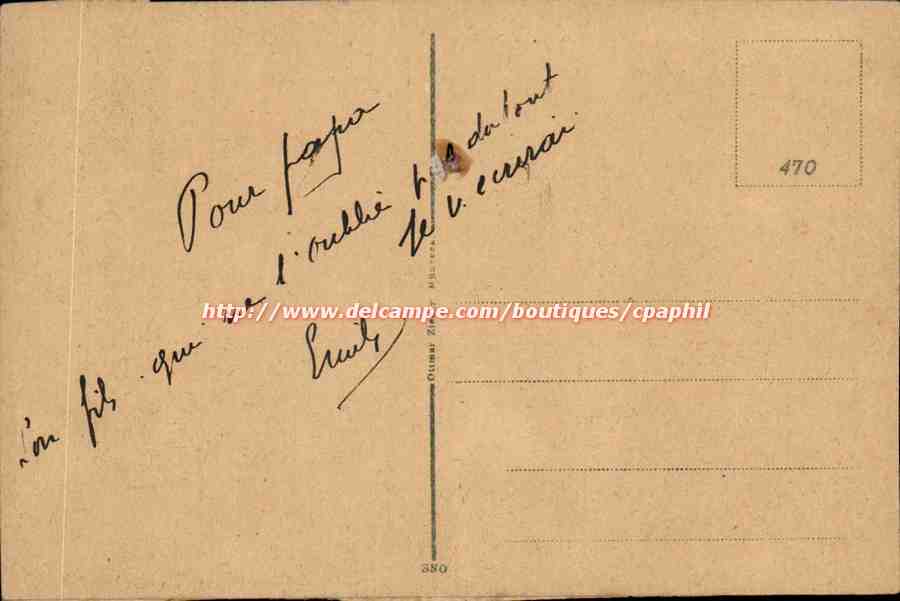 Pour papa
Son fils qui ne l'oublie pas du tout
Je v. ecrirai
Emile
470
http://www.delcampe.com/boutiques/cpaphil
Ottmar Zieher
380